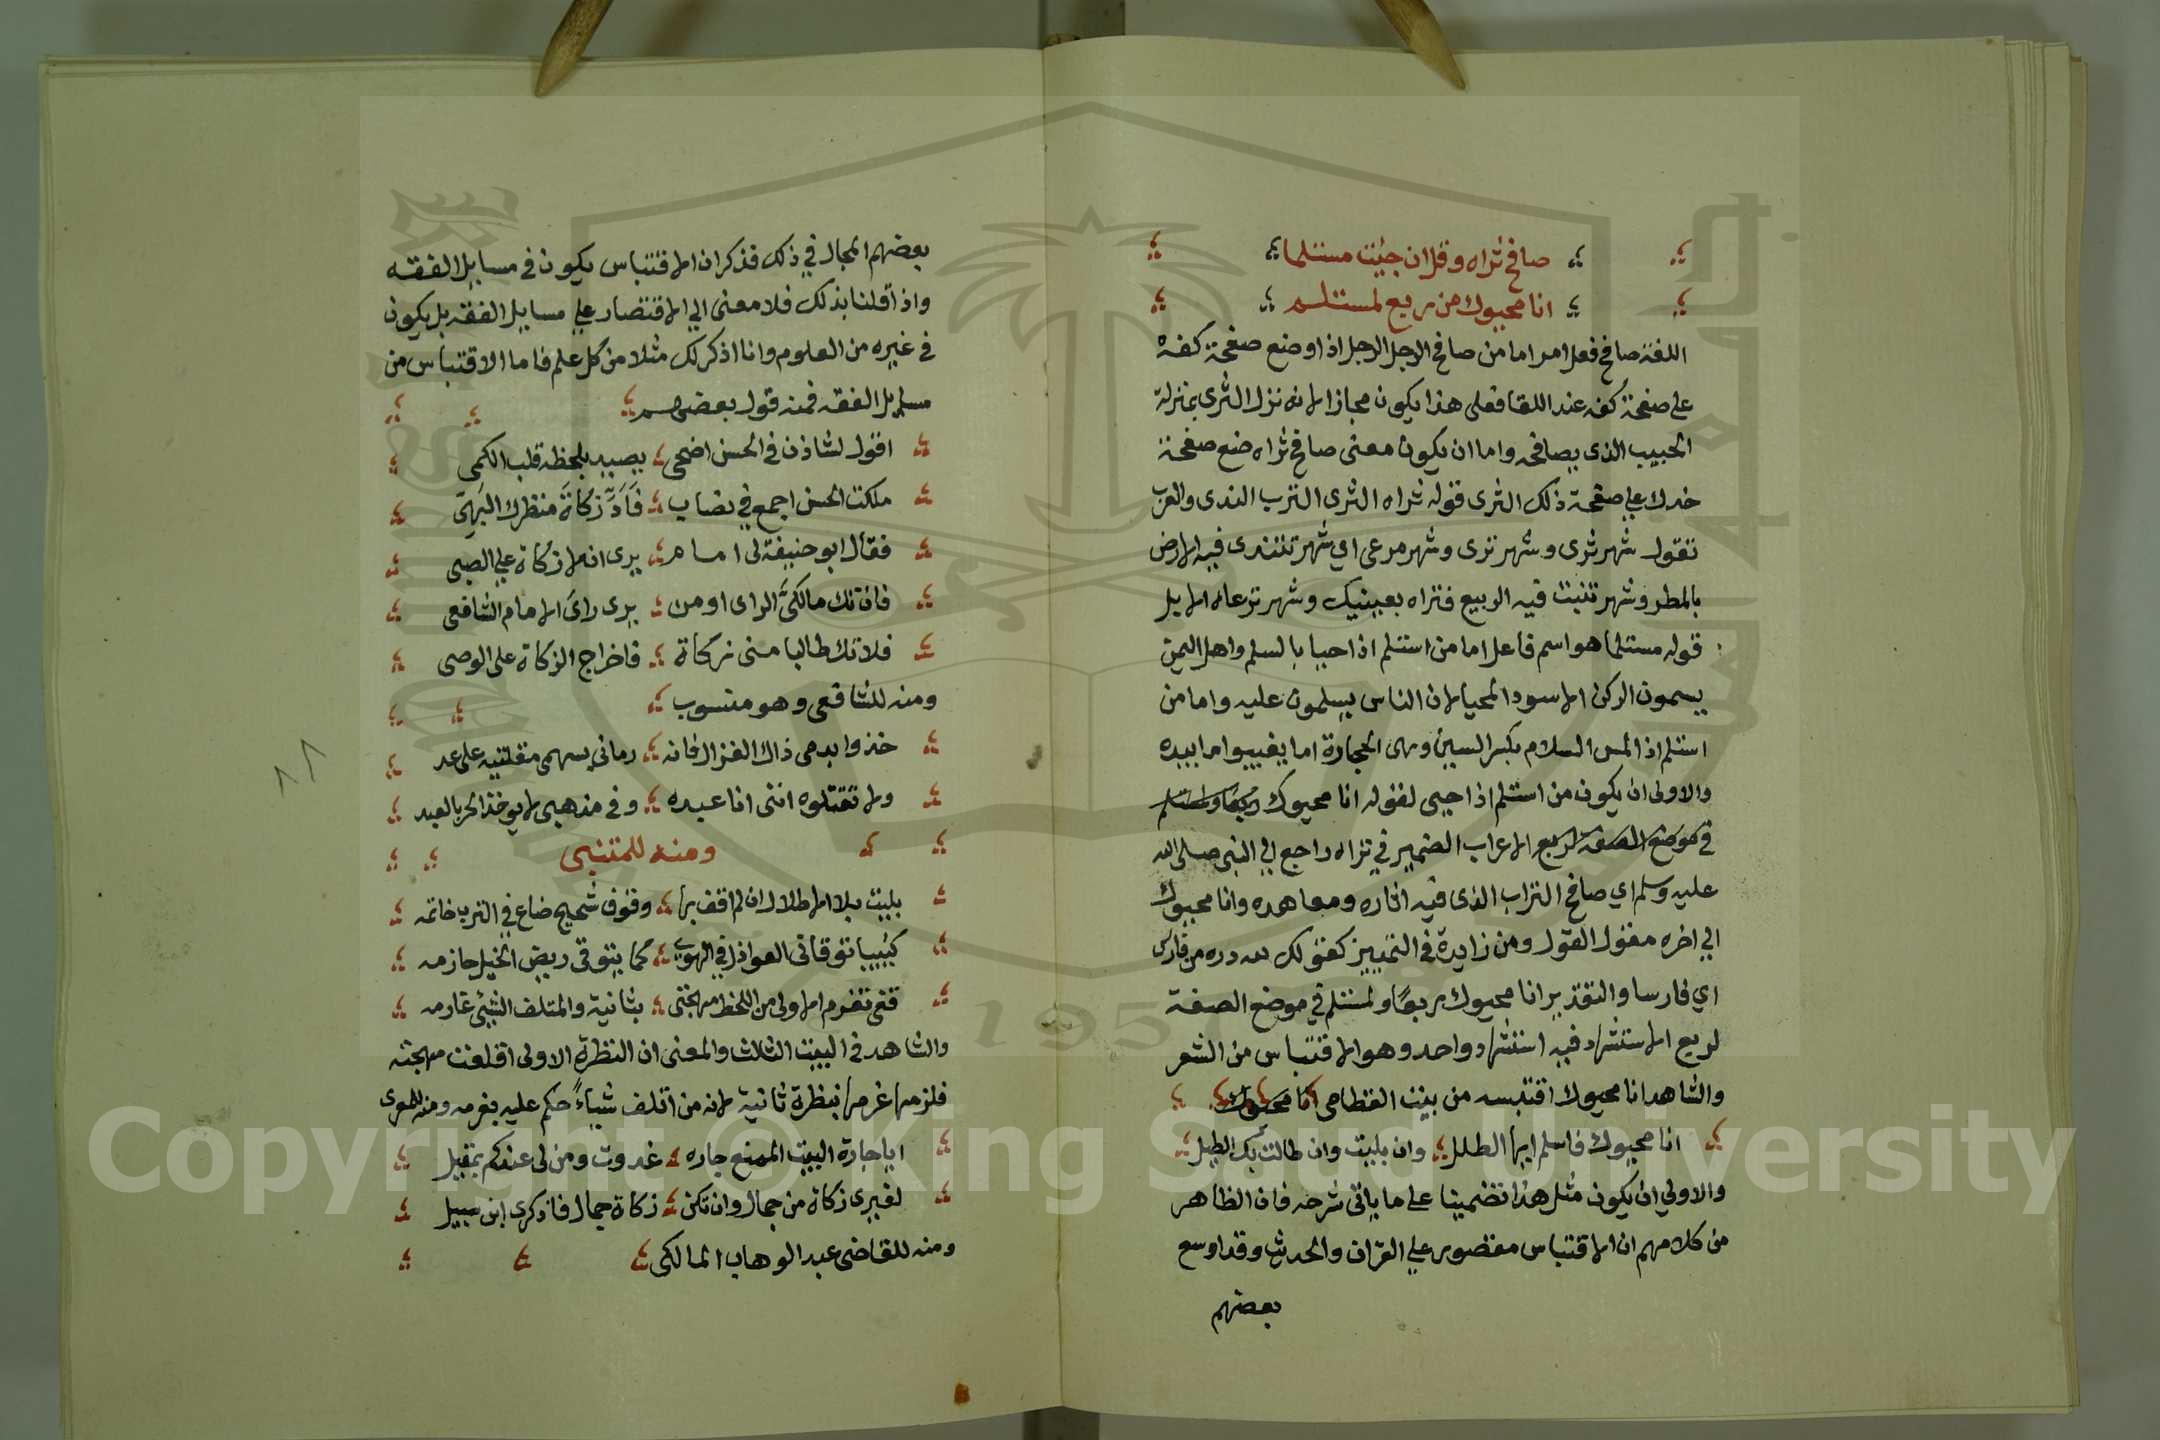 صافح ثراه وقل ان جئت مستلما
انا محيوك من ربع لمستلم
اللغة صافح فعل امر اما من صافح الرجل الرجل اذا وضع صفحة كفه
على صفحة كفه عند اللقا فعلى هذا يكون مجازا لانه نزل الثرى بمنزلة
الحبيب الذى يصافحه واما ان يكون معنى صافح ثراه ضع صفحة
خدك على صفحة ذلك الثرى قوله ثراه الثرى الترب الندى والعرب
تقول شهر ثرى وشهر ترى وشهر مرعى اي شهر تتندى فيه الارض
بالمطر وشهر تنبت فيه الربيع فتراه بعينيك وشهر ترعاه الابل
قوله مستلما هو اسم فاعل اما من استلم اذا حيا بالسلم واهل اليمن
يسمون الركن الاسود المحيا لان الناس يسلمون عليه واما من
استلم اذا لمس السلام بكسر السين وهى الحجارة اما بفيه واما بيده
والاولى ان يكون من استلم اذا حيى لقوله انا محيوك
فى موضع الصفة لربع الاعراب الضمير في ثراه راجع الي النبى صلى الله
عليه وسلم اي صافح التراب الذى فيه اثاره ومعاهده وانا محيوك
الي اخره مقول القول ومن زايدة فى التمييز كقولك لله دره من فارس
اي فارسا والتقدير انا محيوك ربعا ولمستلم في موضع الصفة
لربع الاستشهاد فيه استشهاد واحد وهو الاقتباس من الشعر
والشاهد انا محيوك اقتبسه من بيت القطامى انا محيوك
انا محيوك فاسلم ايها الطلل وان بليت وان طالت بك الطيل
والاولي ان يكون مثل هذا تضمينا على ما ياتى شرحه فان الظاهر
من كلامهم ان الاقتباس مقصور على القران والحديث وقد اوسع
بعضهم
بعضهم المجال في ذلك فذكر ان الاقتباس يكون فى مسايل الفقه
واذا قلنا بذلك فلا معنى الي الاقتصار على مسايل الفقه بل يكون
فى غيره من العلوم وانا اذكر لك مثلا من كل علم فاما الاقتباس من
مسايل الفقه فمنه قول بعضهم
اقول لشاذن فى الحسن اضحى يصيد بلحظه قلب الكمى
ملكت الحسن اجمع في نصاب فَاَدِّ زكاةَ منظرك البَهىّ
فقال ابو حنيفة لى امام يرى ان لا زكاة على الصبى
فان تك مالكىَّ الراى او من يرى راىَ الامام الشافعى
فلا تك طالبا منى زكاة فاخراج الزكاة على الوصى
ومنه للشافعى وهو منسوب
خذوا بدمى ذاك الغزال فانه رمانى بسهمى مقلتيه على عمد
ولا تقتلوه اننى انا عبده وفى مذهبى لا يوخذ الحر بالعبد
ومنه للمتنبى
بليت بلا الاطلال ان لم اقف بها وقوف شحيح ضاع في الترب خاتمه
كئيبا توقانى العواذل في الهوى كما يتوقى ريض الخيل حازمه
قفى تغرم الاولى من اللحظ مهجتى بثانية والمتلف الشيئ غارمه
والشاهد فى البيت الثالث والمعنى ان النظرة الاولى اتلفت مهجته
فلزمها غرمها بنظرة ثانية لانه من اتلف شياءً حكم عليه بغرمه ومنه للمعرى
ايا جارة البيت الممنع جاره غدوت ومن لى عندكم بمقيل
لغيرى زكاة من جمال وان تكن زكاة جمال فاذكرى ابن سبيل
ومنه للقاضى عبد الوهاب المالكى
Copyright © King Saud University
1957